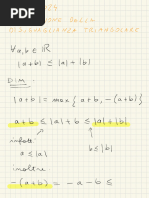 DISUGUAGLIANZA TRIANGOLARE
∀a,b ∈ ℝ
|a+b| ≤ |a| + |b|
DIM.
|a+b| = max{a+b, -(a+b)}
a+b ≤ |a+b| ≤ |a|+|b|
infatti
a ≤ |a| b ≤ |b|
inoltre
-(a+b) = -a-b ≤